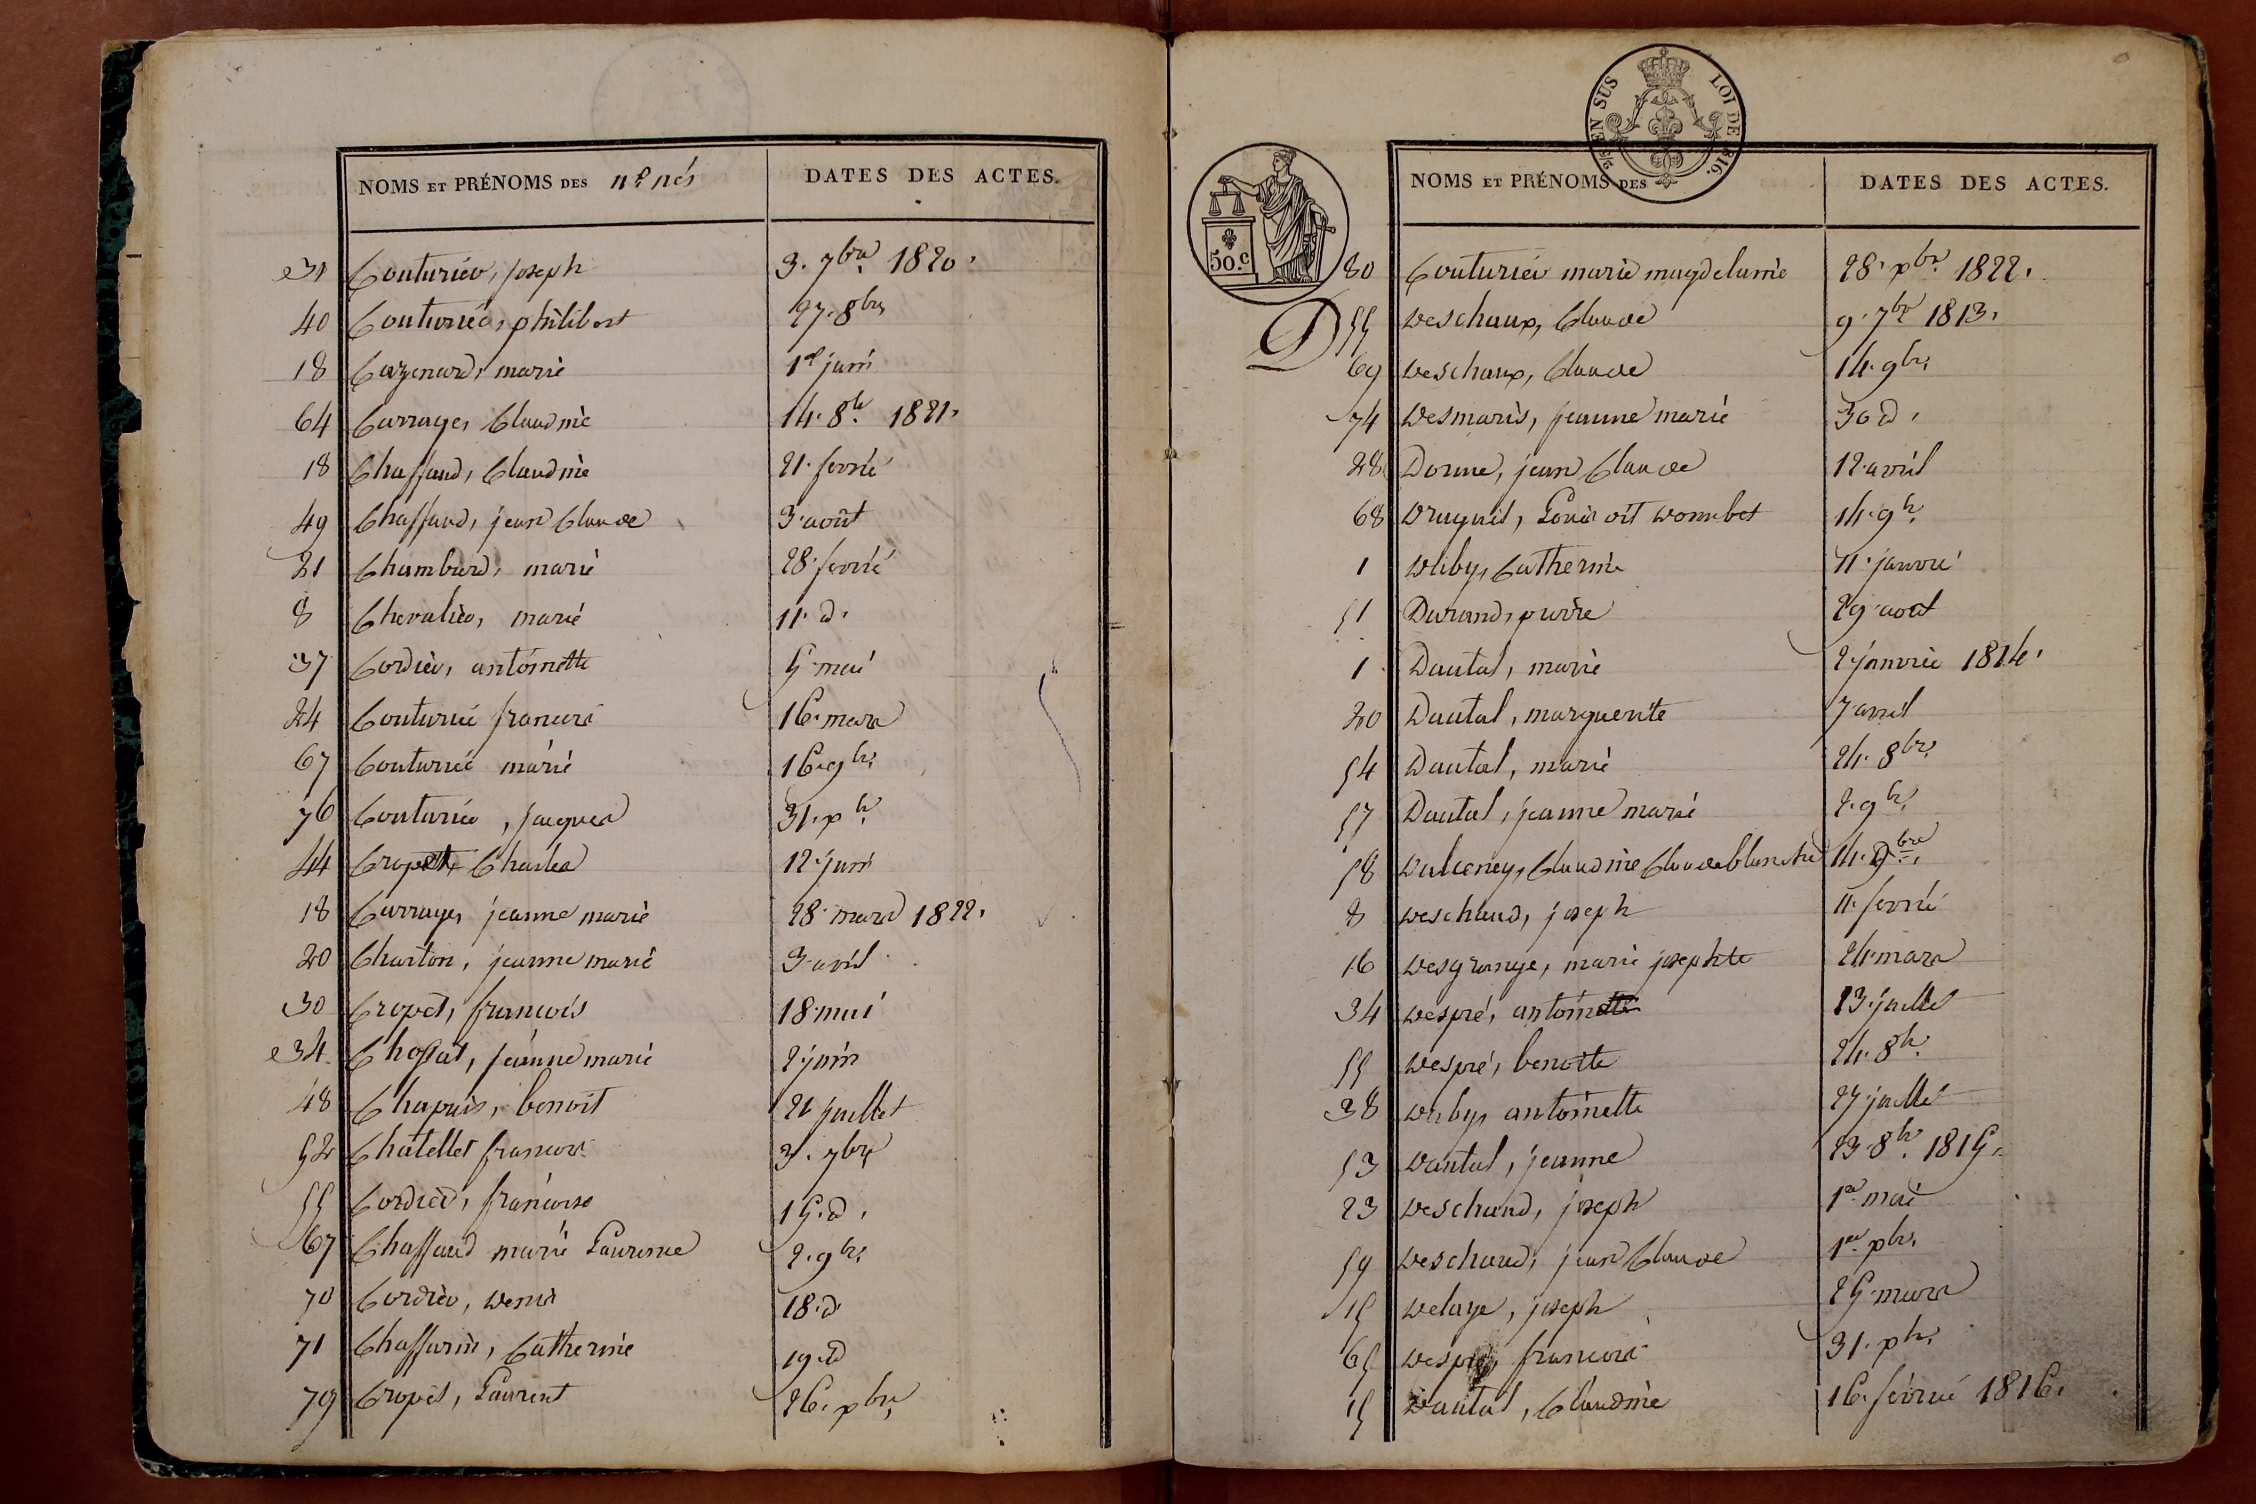 NOMS ET PRÉNOMS DES n.és nés DATES DES ACTES.
31 Couturier, joseph 3. 7bre 1820.
40 Couturier, philibert 27. 8bre
18 Cazenard, marie 1er juin
64 Carrage, Claudine 14. 8bre 1821.
18 Chaffaud, Claudine 21. fevrié
49 Chaffaud, jean Claude 3. août
21 Chambard, marie 28. fevrié
8 Chevalier, marie 11. d.
37 Cordier, antoinette 5. mai
24 Couturié francois 16. mars
67 Couturié marie 16. 9bre
76 Couturier, jacques 31. xbre
44 Cropet Charles 12. juin
18 Carrage, jeanne marie 28. mars 1822.
20 Charton, jeanne marie 3. avril
30 Cropet, francois 18. mai
34 Chossat, jeanne marie 2 juin
48 Chapuis, benoit 21 juillet
52 Châtellet francois 3. 7bre
55 Cordier, francoise 15. d.
67 Chaffaud marie Laurence 2. 9bre
70 Cordier, Denis 18. d
71 Chaffarin, Catherine 19. d
79 Cropet, Laurent 26. xbre
EN SUS LOI DE 1816.
50.c
NOMS ET PRÉNOMS DES DATES DES ACTES.
80 Couturier marie magdelaine 28. xbre 1822.
D
55 Deschaux, Claude 9. 7bre 1813.
69 Deschaux, Claude 14. 9bre
74 Desmaris, jeanne marie 30 d.
28 Dorme, jean Claude 12. avril
68 Louis dit 14. 9bre
1 Catherine 11. janvié
51 Durand, pierre 29. août
1 Dautal, marie 2. janvier 1814.
20 Dautal, marguerite 7 avril
54 Dautal, marie 24. 8bre
57 Dautal, jeanne marie 2. 9bre
58 Claudine Claude blanche 14. 9bre
8 Deschaud, joseph 11. fevrié
16 Desgrange, marie josephte 24. mars
34 Despré, antoine 13. juillet
55 Despré, benoite 24. 8bre
38 antoinette 27. juillet
53 Dautal, jeanne 23. 8bre 1815.
23 Deschaud, joseph 1er mai
59 Deschaud, jean Claude 1er xbre
15 Delaye, joseph 25. mars
65 Despré, francois 31. xbre
15 Dautal, Claudine 16. fevrié 1816.